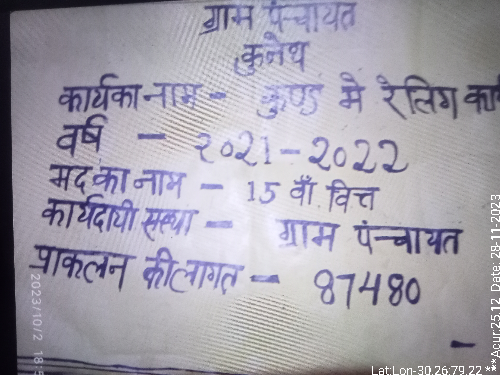 ग्राम पंन्चायत
कुनेथ
कार्यका नाम - कुण्ड मे रेलिग कार्य
वर्ष - २०२1-२०22
मद का नाम - 15 वाँ वित्त
कार्यदायी सस्था - ग्राम पंन्चायत
प्राकलन कीलागत - 87480
2023/10/2 18:5
Lat:Lon-30.26:79.22 **Acur:25.12 Date: 28-11-2023